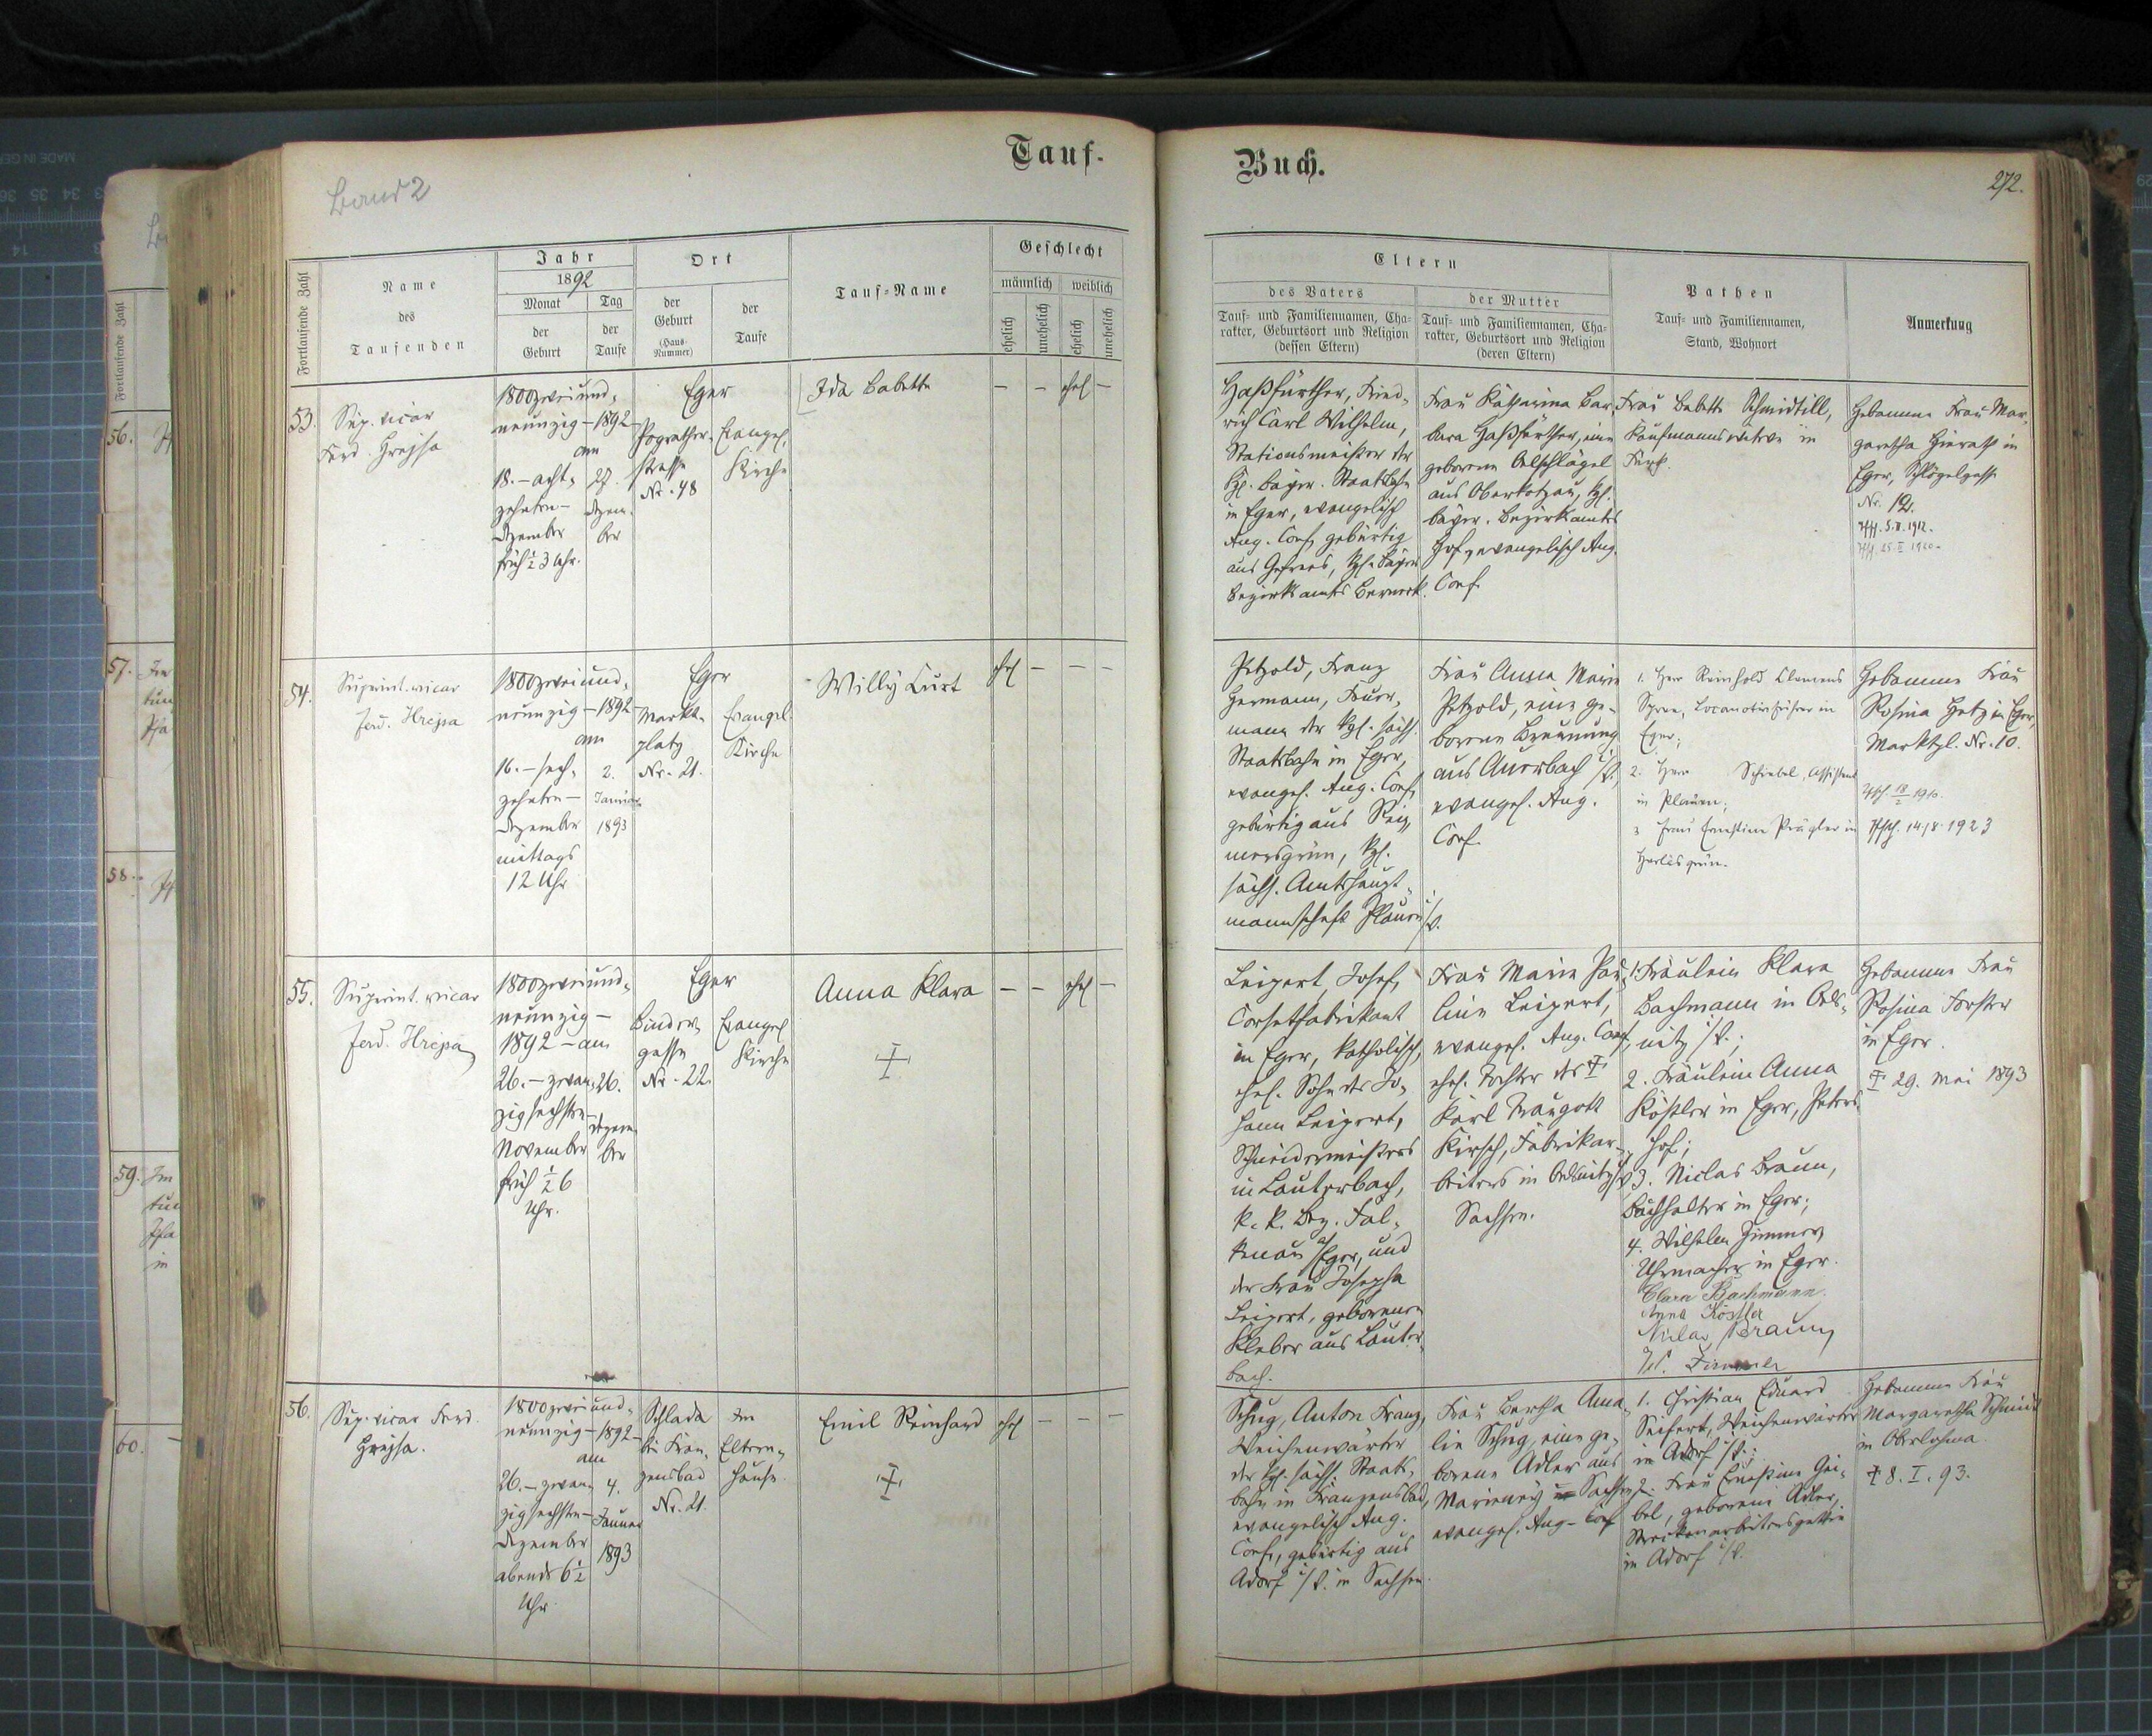 Band 2
Tauf-
Buch.
272.
Fortlaufende Zahl
Name
des
Taufenden
Jahr
1892
Monat
der
Geburt
Tag
der
Taufe
Ort
der
Geburt
(Haus-
Nummer)
der
Taufe
Tauf-Name
Geschlecht
männlich
weiblich
ehelich
unehelich
ehelich
unehelich
Eltern
des Vaters
Tauf- und Familiennamen, Cha-
rakter, Geburtsort und Religion
(dessen Eltern)
der Mutter
Tauf- und Familiennamen, Cha-
rakter, Geburtsort und Religion
(deren Eltern)
Pathen
Tauf- und Familiennamen,
Stand, Wohnort
Anmerkung
53.
Sup. vicar
Ferd. Hrejsa
1800zweiund-
neunzig – 1892
am
18. – acht-
zehnten –
Dezember
früh ½ 3 Uhr.
27.
Dezem-
ber
Eger
Pograther-
strasse
Nr. 48
Evangel.
Kirche
Ida Babette
– – ehel –
Haßfürther, Fried-
rich Carl Wilhelm,
Stationsmeister der
Kgl. bayer. Staatsbahn
in Eger, evangelisch
Aug. Conf. gebürtig
aus Gefrees, Kgl. bayer.
Bezirksamts Berneck.
Frau Katharina Bar-
bara Haßfürther, eine
geborene Oelschlägel
aus Oberkotzau, Kgl.
bayer. Bezirksamts
Hof, evangelisch Aug.
Conf.
Frau Babette Schmidtill,
Kaufmannswitwe in
Hebamme Frau Mar-
garetha Hierath in
Eger, Schlögelgasse
Nr. 12.
1912.
1920
54.
Superint. vicar
Ferd. Hrejsa
1800zweiund-
neunzig – 1892
am
16. – sech-
zehnten –
Dezember
mittags
12 Uhr
2.
Januar
1893
Eger
Markt-
platz
Nr. 21.
Evangel.
Kirche
Willy Curt
ehel – – –
Petzold, Franz
Hermann, Feuer-
mann der Kgl. sächs.
Staatsbahn in Eger,
evangel. Aug. Conf.
gebürtig aus Rei-
mersgrün, Kgl.
sächs. Amtshaupt-
mannschaft Plauen i/V.
Frau Anna Marie
Petzold, eine ge-
borene Breunung
aus Auerbach i/V.,
evangel. Aug.
Conf.
1. Herr Reinhold Clemens
Locomotivführer in
Eger;
2. Herr Schiebel, Assistent
in Plauen;
3. Frau Ernestine Prägler in
Herlasgrün.
Hebamme Frau
Rosina Hetz in Eger,
Marktpl. Nr. 10.
18/2 1910.
14/8. 1923
55.
Superint. vicar
Ferd. Hrejsa
1800zweiund-
neunzig –
1892 – am
26. – zwan-
zigsechsten –
November
früh ½ 6
Uhr.
26.
Dezem-
ber
Eger
Binder-
gasse
Nr. 22.
Evangel.
Kirche
Anna Klara
– – ehel –
Leipert, Josef,
Corsetfabrikant
in Eger, katholisch,
ehel. Sohn des Jo-
hann Leipert,
Schneidermeisters
in Lauterbach,
k. k. Bez. Fal-
kenau a/Eger, und
der Frau Josepha
Leipert, geborenen
Kleber aus Lauter-
bach.
Frau Marie Pau-
line Leipert,
evangel. Aug. Conf.,
ehel. Tochter des †
Karl Traugott
Kirsch, Fabrikar-
beiters in Oelsnitz i/V
Sachsen.
1. Fräulein Klara
Bachmann in Oels-
nitz i/V.;
2. Fräulein Anna
Köstler in Eger, Peters-
hof;
3. Niclas Braun,
Buchhalter in Eger;
4. Wilhelm Zimmer,
Uhrmacher in Eger.
Clara Bachmann.
Anna Köstler
Niclas Braun
W. Zimmer
Hebamme Frau
Rosina Forster
in Eger.
† 29. Mai 1893
56.
Sup. vicar Ferd.
Hrejsa.
1800zweiund-
neunzig – 1892 –
am
26. – zwan-
zigsechsten –
Dezember
abends 6½
Uhr
4.
Januar
1893
Schlada
bei Fran-
zensbad
Nr. 21.
Im
Eltern-
hause.
Emil Reinhard
ehel – – –
Schug, Anton Franz,
Weichenwärter
der Kgl. sächs. Staats-
bahn in Franzensbad,
evangelisch Aug.
Conf., gebürtig aus
Adorf i/V. in Sachsen.
Frau Bertha Ama-
lie Schug, eine ge-
borene Adler aus
Marieney in Sachsen,
evangel. Aug. Conf
1. Christian Eduard
Seifert, Weichenwärter
in Adorf i/V.;
2. Frau Ernestine Gei-
bel, geborene Adler,
Streckenarbeitersgattin
in Adorf i/V.
Hebamme Frau
Margaretha Schmidt
in Oberlohma.
† 8. I. 93.
56.
57.
58.
59.
60.